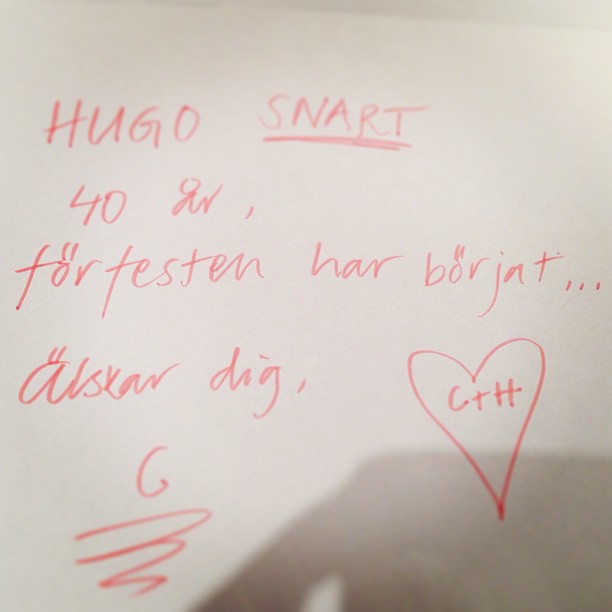 HUGO SNART
40 år,
förfesten har börjat...
Älskar dig,
C+H
C